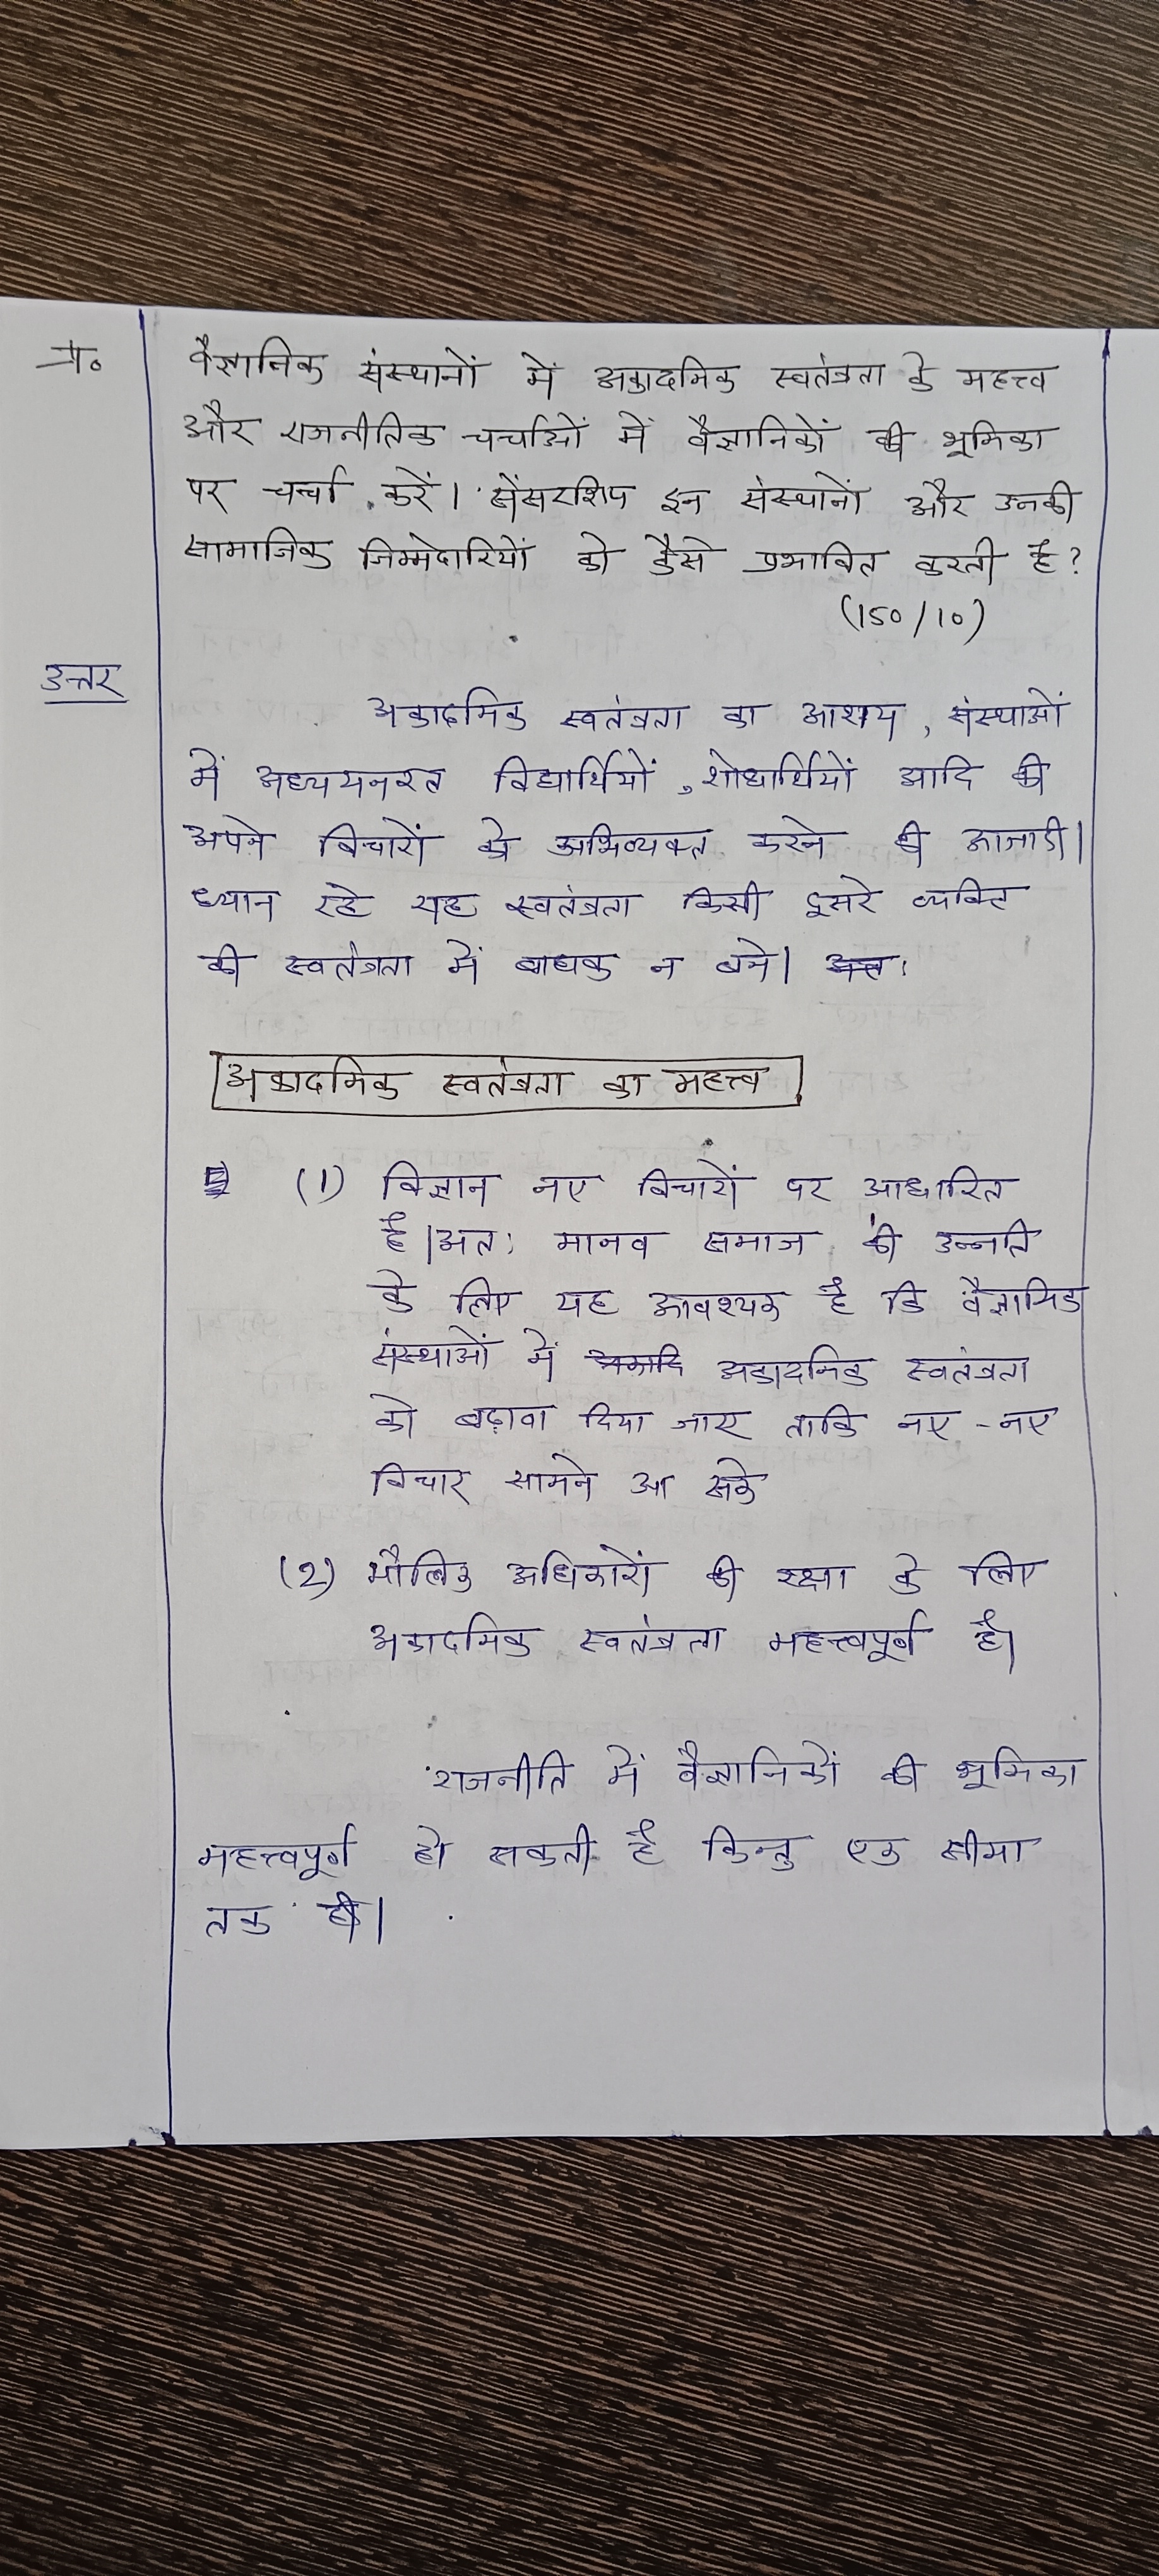 प्र०
वैज्ञानिक संस्थानों में अकादमिक स्वतंत्रता के महत्त्व
और राजनीतिक चर्चाओं में वैज्ञानिकों की भूमिका
पर चर्चा करें। सेंसरशिप इन संस्थानों और उनकी
सामाजिक जिम्मेदारियों को कैसे प्रभावित करती है?
(150/10)
उत्तर
अकादमिक स्वतंत्रता का आशय, संस्थाओं
में अध्ययनरत विद्यार्थियों, शोधार्थियों आदि की
अपने विचारों को अभिव्यक्त करने की आजादी।
ध्यान रहे यह स्वतंत्रता किसी दूसरे व्यक्ति
की स्वतंत्रता में बाधक न बने।
अकादमिक स्वतंत्रता का महत्त्व
(1) विज्ञान नए विचारों पर आधारित
है। अतः मानव समाज की उन्नति
के लिए यह आवश्यक है कि वैज्ञानिक
संस्थाओं में अकादमिक स्वतंत्रता
को बढ़ावा दिया जाए ताकि नए-नए
विचार सामने आ सके
(2) मौलिक अधिकारों की रक्षा के लिए
अकादमिक स्वतंत्रता महत्त्वपूर्ण है।
राजनीति में वैज्ञानिकों की भूमिका
महत्त्वपूर्ण हो सकती है किन्तु एक सीमा
तक ही।